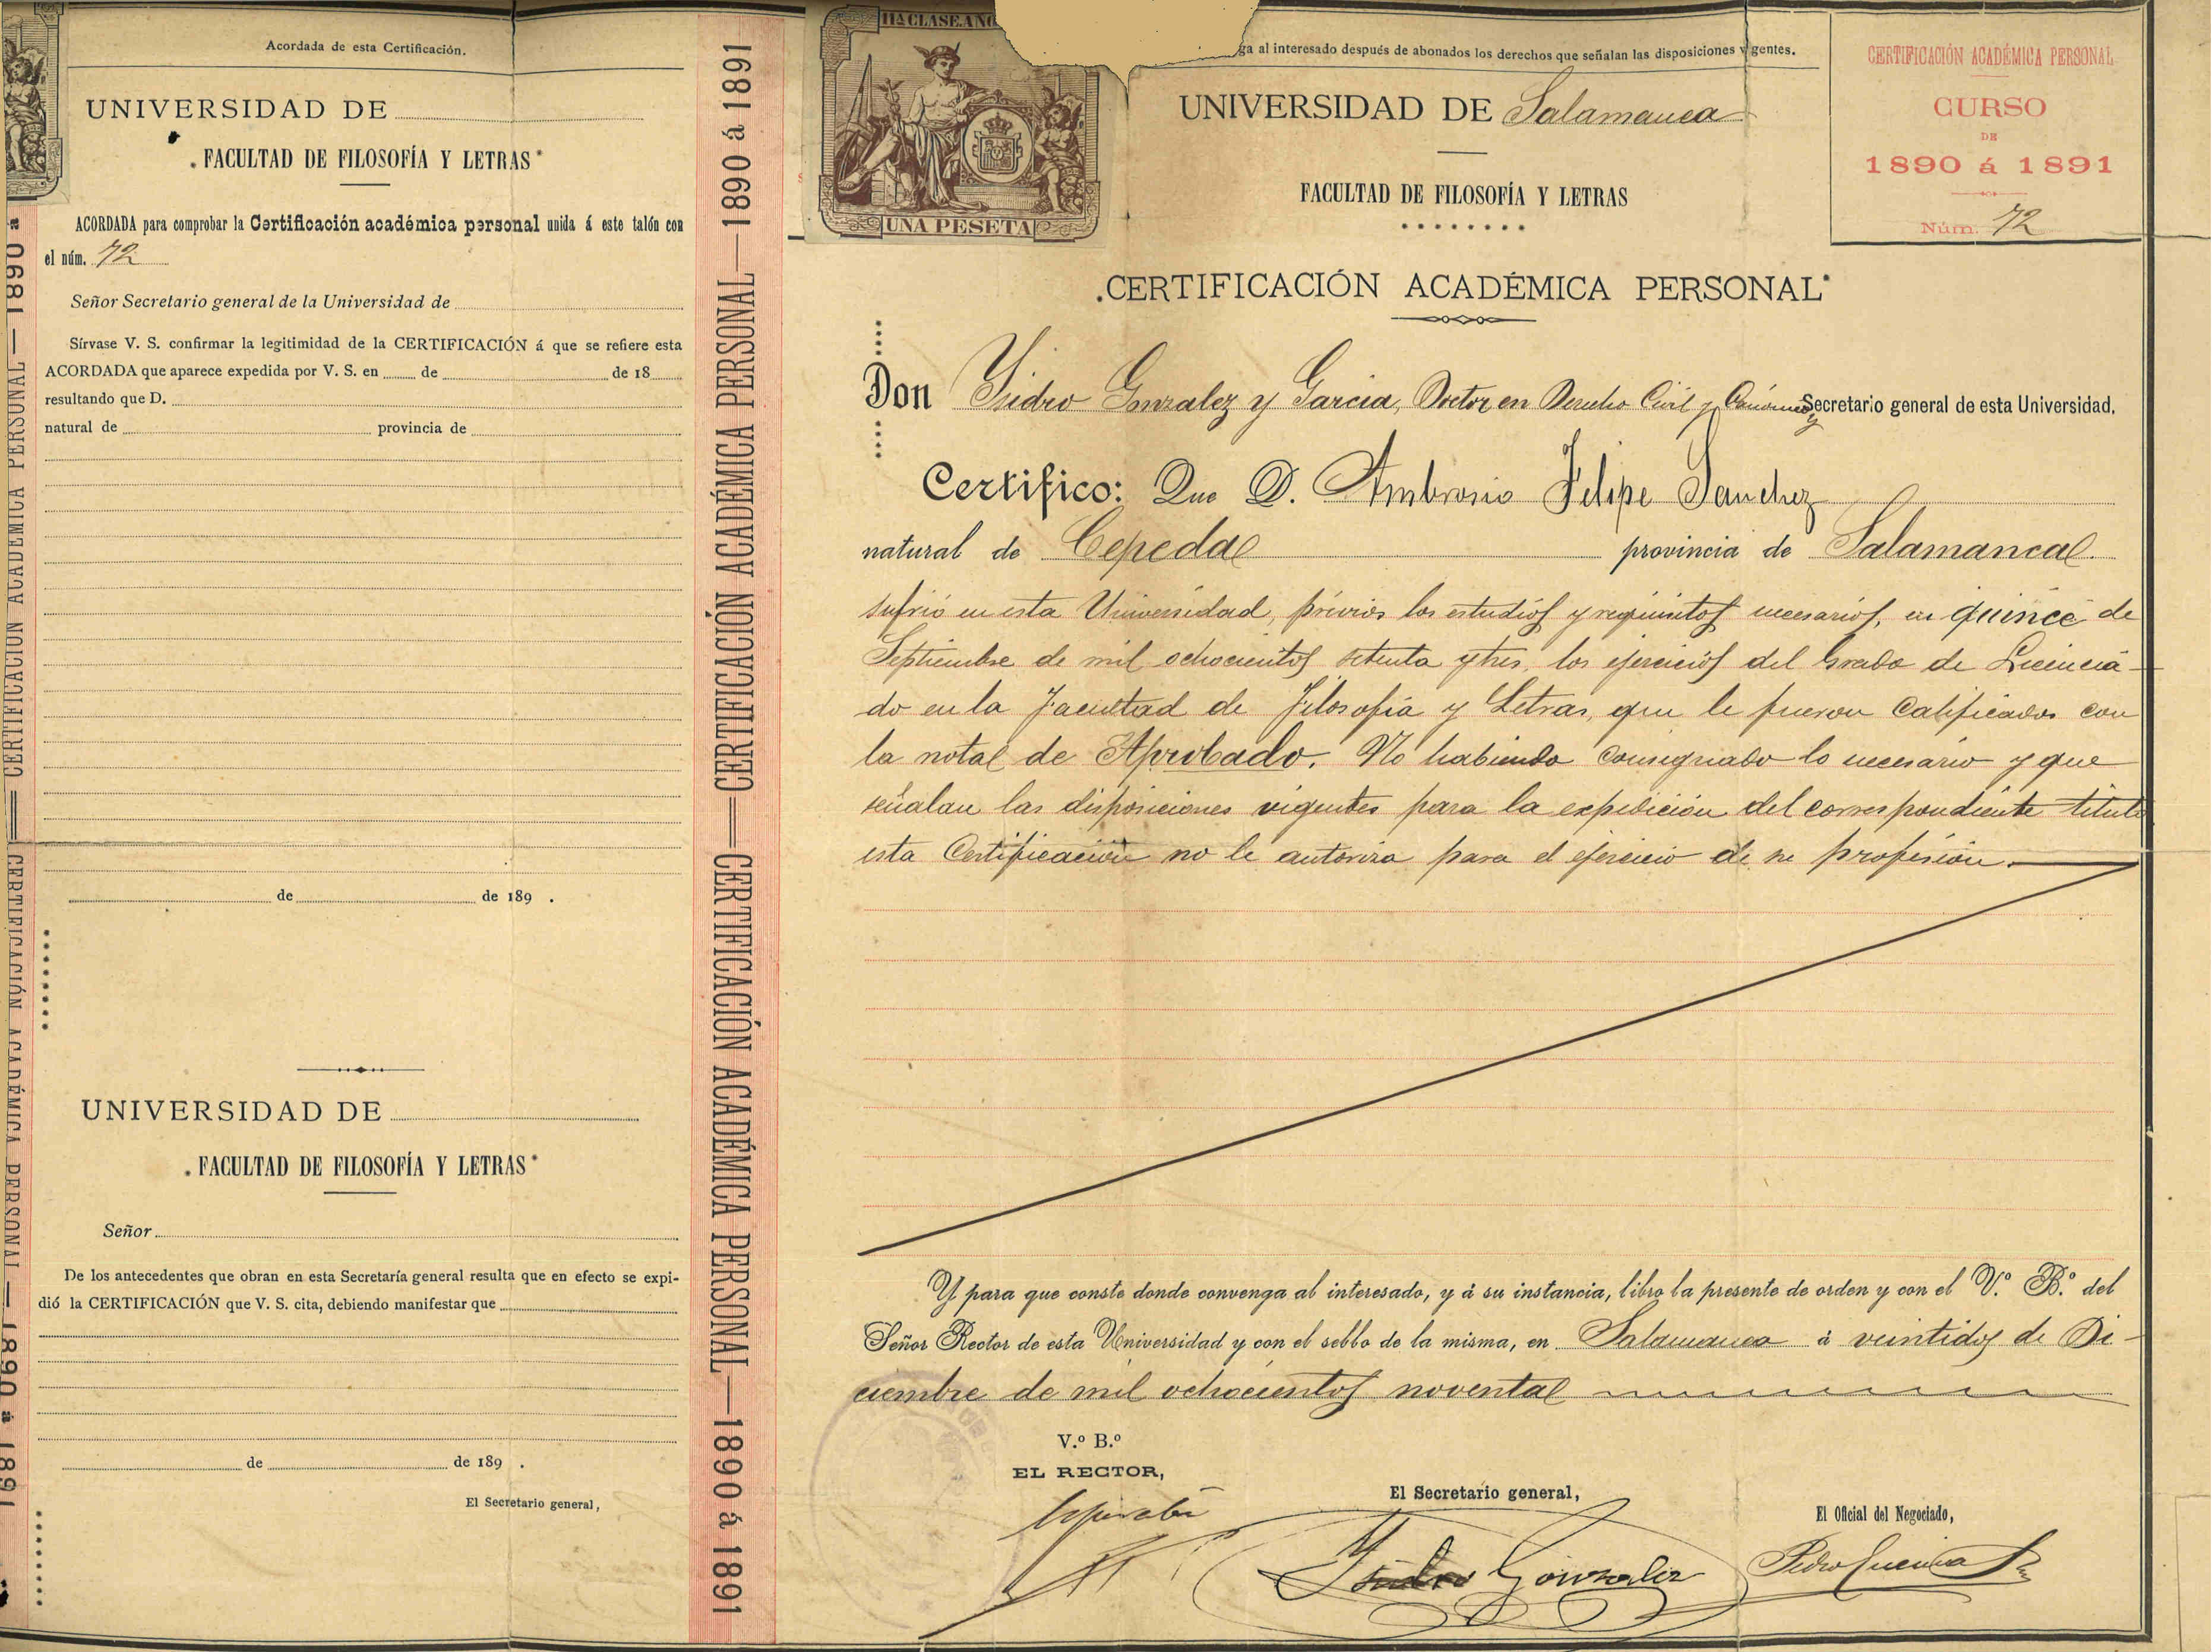 Acordada de esta Certificación.
UNIVERSIDAD DE
FACULTAD DE FILOSOFÍA Y LETRAS
ACORDADA para comprobar la Certificación académica personal unida á este talón con
el núm. 72
Señor Secretario general de la Universidad de
Sírvase V. S. confirmar la legitimidad de la CERTIFICACIÓN á que se refiere esta
ACORDADA que aparece expedida por V. S. en de de 18
resultando que D.
natural de provincia de
de de 189 .
UNIVERSIDAD DE
FACULTAD DE FILOSOFÍA Y LETRAS
Señor
De los antecedentes que obran en esta Secretaría general resulta que en efecto se expi-
dió la CERTIFICACIÓN que V. S. cita, debiendo manifestar que
de de 189 .
El Secretario general,
CERTIFICACIÓN ACADÉMICA PERSONAL — 1890 á
CERTIFICACIÓN ACADÉMICA PERSONAL — 1890 á 1891
CERTIFICACIÓN ACADÉMICA PERSONAL—1890 á 1891
CERTIFICACIÓN ACADÉMICA PERSONAL—1890 á 1891
11ª CLASE. AÑO
UNA PESETA
ga al interesado después de abonados los derechos que señalan las disposiciones vigentes.
UNIVERSIDAD DE Salamanca
FACULTAD DE FILOSOFÍA Y LETRAS
CERTIFICACIÓN ACADÉMICA PERSONAL
CURSO
DE
1890 á 1891
Núm. 72
CERTIFICACIÓN ACADÉMICA PERSONAL
Don Ysidro Gonzalez y Garcia, Doctor en Derecho Civil y Canónico, Secretario general de esta Universidad.
Certifico: Que D. Ambrosio Felipe Sanchez
natural de Cepeda provincia de Salamanca
sufrió en esta Universidad, prévios los estudios y requisitos necesarios, en quince de
Septiembre de mil ochocientos setenta y tres, los ejercicios del Grado de Licencia-
do en la Facultad de Filosofía y Letras, que le fueron calificados con
la nota de Aprobado. No habiendo consignado lo necesario y que
señalan las disposiciones vigentes para la expedición del correspondiente título
esta Certificación no le autoriza para el ejercicio de su profesión.
Y para que conste donde convenga al interesado, y á su instancia, libro la presente de orden y con el V.º B.º del
Señor Rector de esta Universidad y con el sello de la misma, en Salamanca á veintidos de Di-
ciembre de mil ochocientos noventa
V.º B.º
EL RECTOR,
El Secretario general,
Ysidro Gonzalez
El Oficial del Negociado,
Pedro